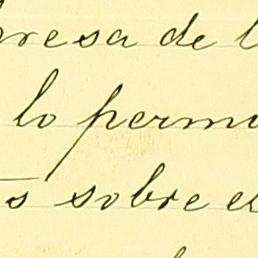 presa de l
lo permi
s sobre e